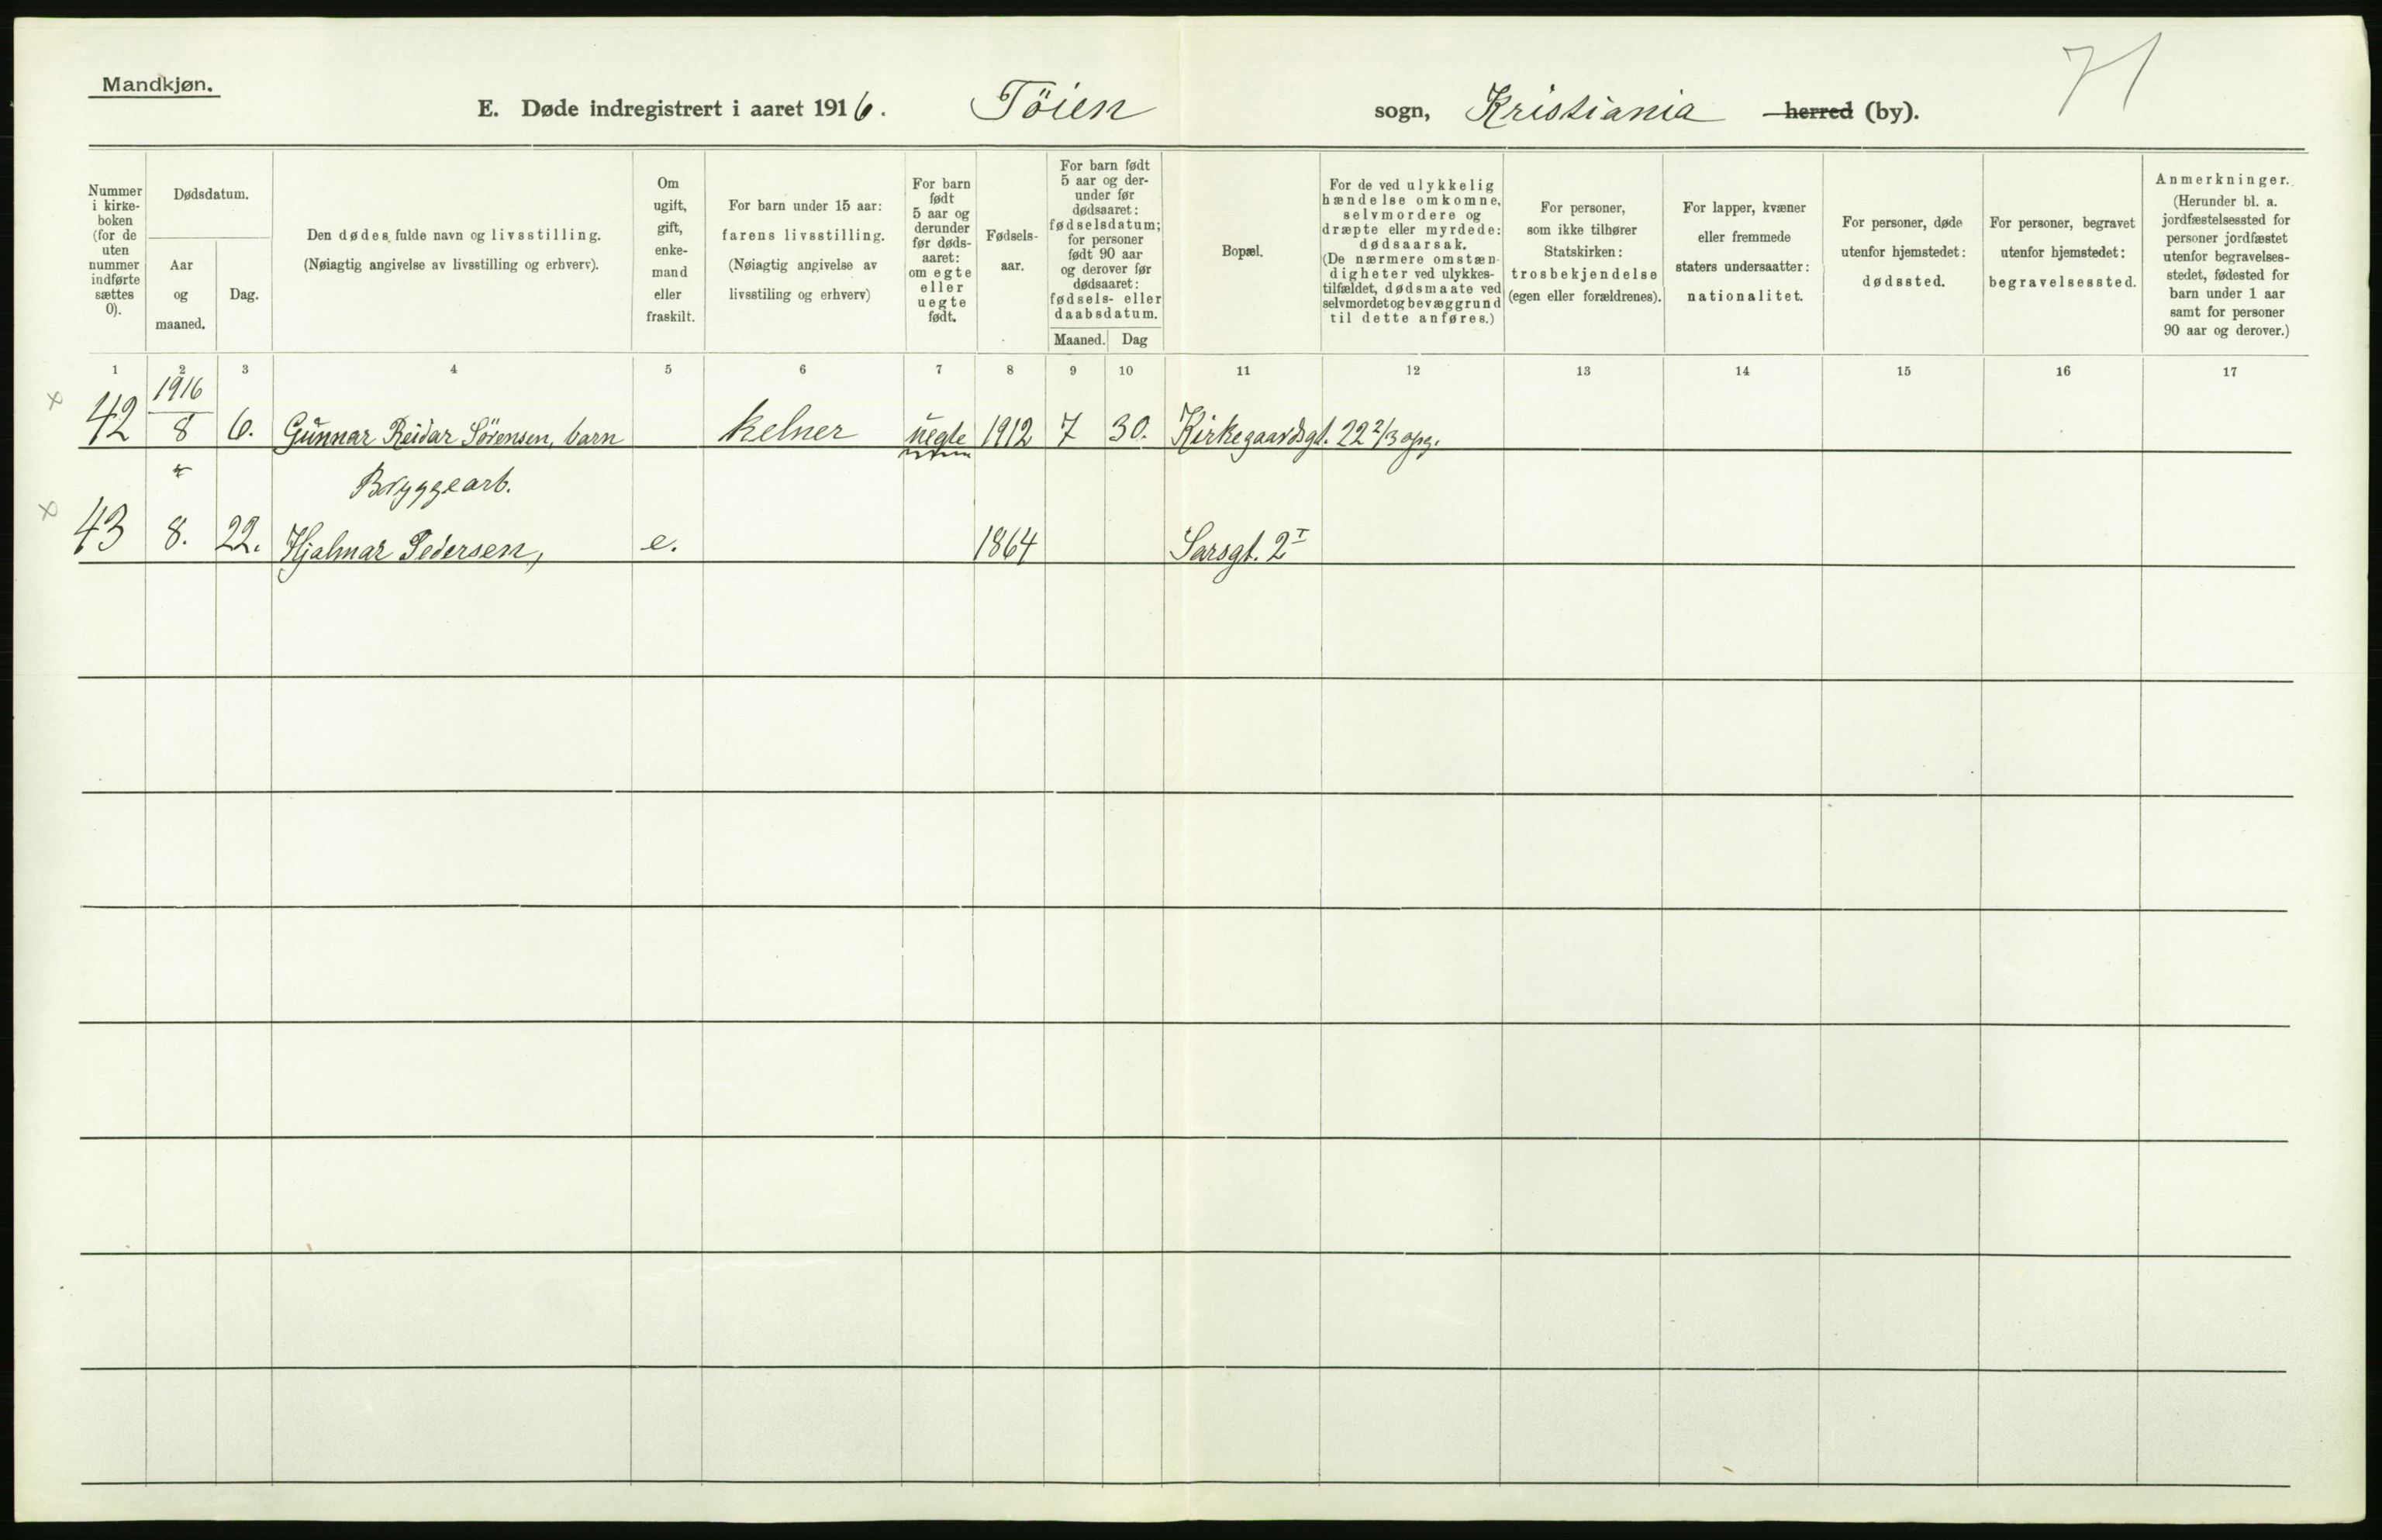 Mandkjøn.
71
E. Døde indregistrert i aaret 1916. Töien sogn, Kristiania herred (by).
Nummer i kirke- boken (for de uten nummer indførte sættes 0).
Dødsdatum.
Aar og maaned.
Dag.
Den dødes fulde navn og livsstilling.
(Nøiagtig angivelse av livsstilling og erhverv).
Om ugift, gift, enke- mand eller fraskilt.
For barn under 15 aar:
farens livsstilling.
(Nøiagtig angivelse av
livsstiling og erhverv)
For barn født 5 aar og derunder før døds- aaret: om egte eller uegte født.
Fødsels- aar.
For barn født 5 aar og der- under før dødsaaret: fødselsdatum; for personer født 90 aar og derover før dødsaaret: fødsels- eller daabsdatum.
Maaned. Dag
Bopæl.
For de ved ulykkelig hændelse omkomne, selvmordere og dræpte eller myrdede: dødsaarsak.
(De nærmere omstæn- digheter ved ulykkes- tilfældet, dødsmaate ved selvmordet og bevæggrund til dette anføres.)
For personer, som ikke tilhører Statskirken: trosbekjendelse (egen eller forældrenes).
For lapper, kvæner eller fremmede staters undersaatter: nationalitet.
For personer, døde utenfor hjemstedet: dødssted.
For personer, begravet utenfor hjemstedet: begravelsessted.
Anmerkninger.
(Herunder bl. a. jordfæstelsessted for personer jordfæstet utenfor begravelses- stedet, fødested for barn under 1 aar samt for personer 90 aar og derover.)
1 2 3 4 5 6 7 8 9 10 11 12 13 14 15 16 17
1916
x 42 8 6. Gunnar Reidar Sörensen, barn kelner uegte 1912 7 30. Kirkegaardsgt. 22 2/3 opg.
Bryggearb.
x 43 8. 22. Hjalmar Pedersen, e. 1864 Sarsgt. 2 I